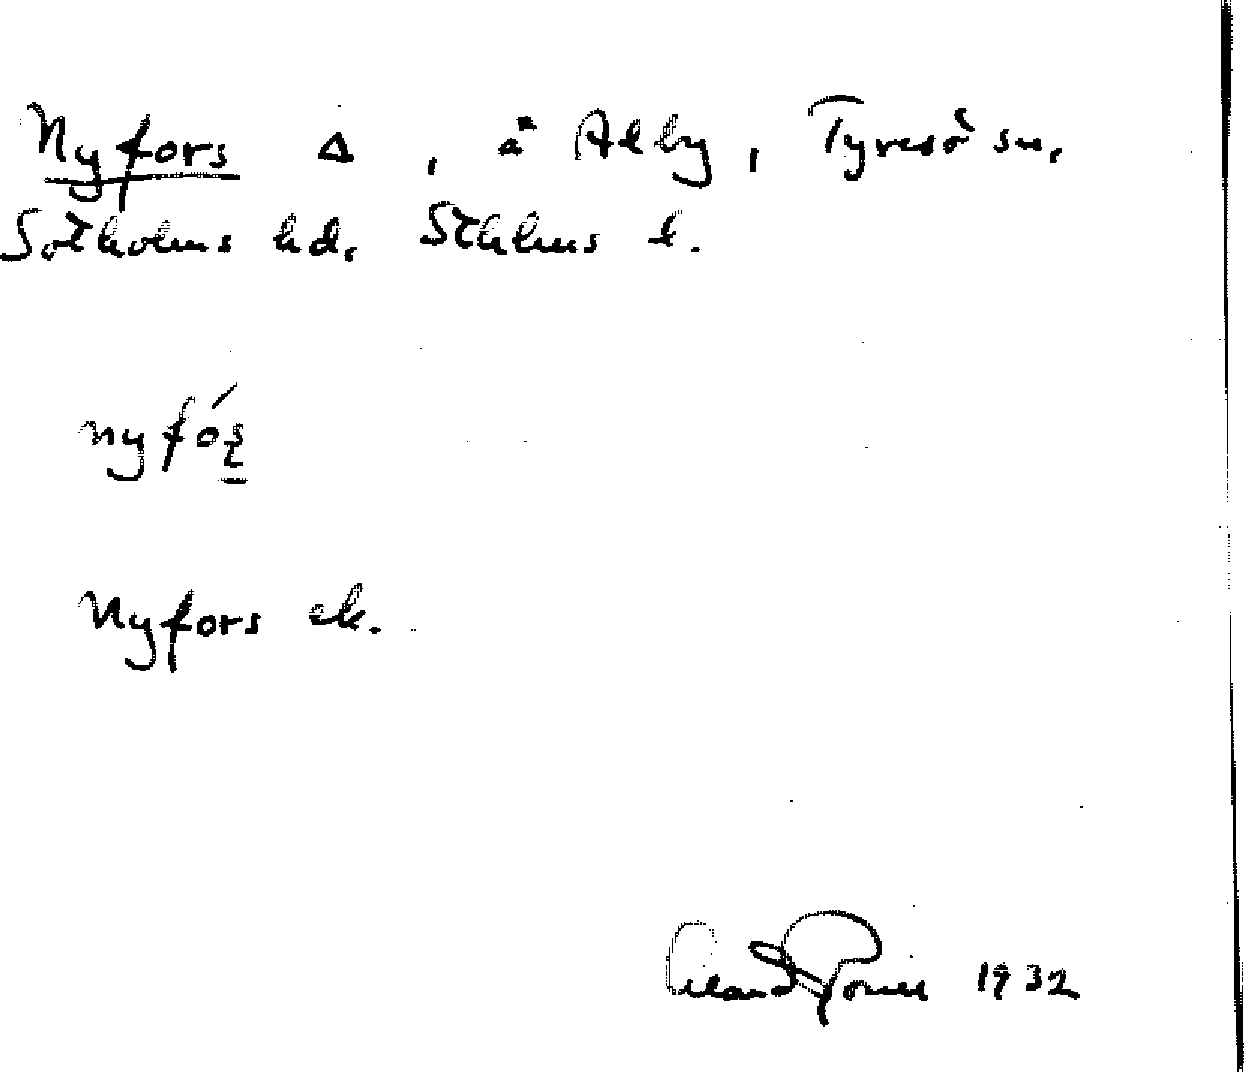 Nyfors Δ, å Alby, Tyresö sn.
Sotholms hd. Sthlms l.
nyfó
Nyfors ek.
1932